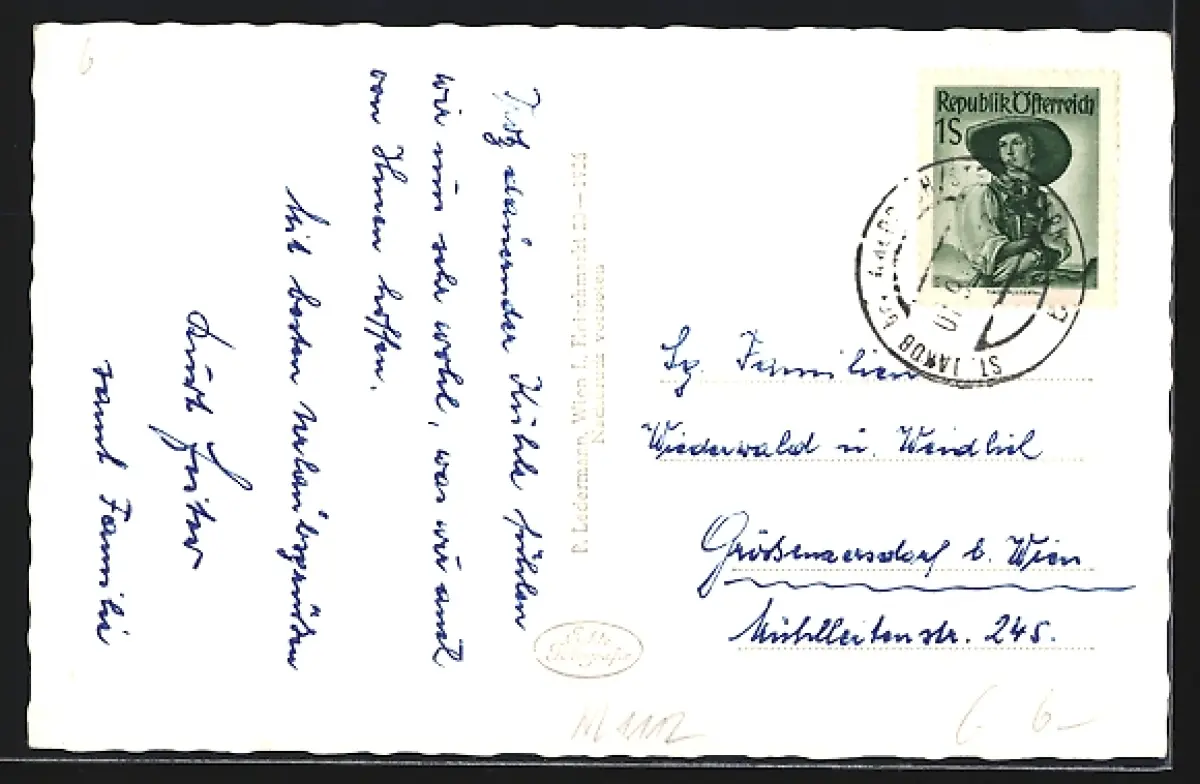 Trotz dauernder Kühle fühlen
wir uns sehr wohl, was wir auch
von Ihnen hoffen.
Mit besten Urlaubsgrüßen
samt Familie
P. Ledermann, Wien I., Fleischmarkt 20—1955
Nachdruck verboten
Echte
Fotografie
Republik Österreich
1S
ST. JAKOB
Sg. Familien
Wiederwald u. Weidlich
Größenzersdorf b. Wien
Mühlleitenstr. 245.
M 1112
6
6-